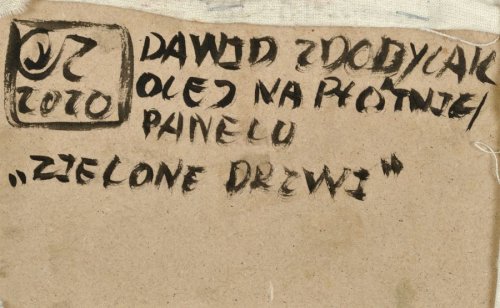 DZ
2020
DAWID ZDOBYLAK
OLEJ NA PŁÓTNIE/
PANELU
„ZIELONE DRZWI”